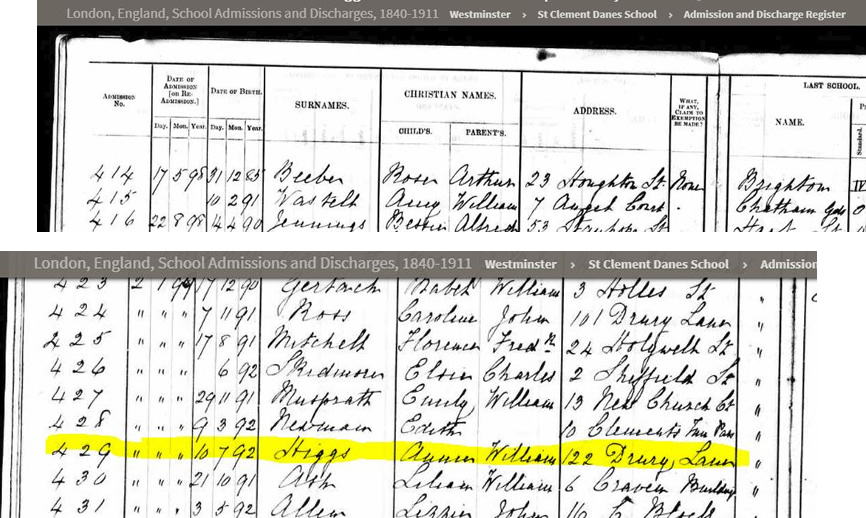 London, England, School Admissions and Discharges, 1840-1911 Westminster > St Clement Danes School > Admission and Discharge Register
ADMISSION No. DATE OF ADMISSION [or RE-ADMISSION.] Day. Mon. Year. DATE OF BIRTH. Day. Mon. Year. SURNAMES. CHRISTIAN NAMES. CHILD'S. PARENT'S. ADDRESS. WHAT, IF ANY, CLAIM TO EXEMPTION BE MADE? LAST SCHOOL. NAME. Standard.
414 17 5 98 31 12 85 Beeber Rose Arthur 23 Houghton St. None Brighton IV
415 10 2 91 William 7 Angel Court Chatham Gds
416 22 8 98 14 4 90 Jennings Bessie Alfred 53
London, England, School Admissions and Discharges, 1840-1911 Westminster > St Clement Danes School > Admission
423 2 1 99 17 12 90 Mabel William 3 Holles St "
424 " " " 7 11 91 Ross Caroline John 101 Drury Lane "
225 " " " 17 8 91 Mitchell Florence Fredk 24 Holywell St "
426 " " " 6 92 Skidmore Elsie Charles 2 Sheffield St "
427 " " " 29 11 91 Musprath Emily William 13 New Church Ct "
428 " " " 9 3 92 Newman Edith 10 Clements Inn Pass "
429 " " " 10 7 92 Higgs Annie William 122 Drury Lane "
430 " " " 21 10 91 Ash Lilian William 6 Craven Building "
431 " " " 3 5 92 Allen Lizzie John 16